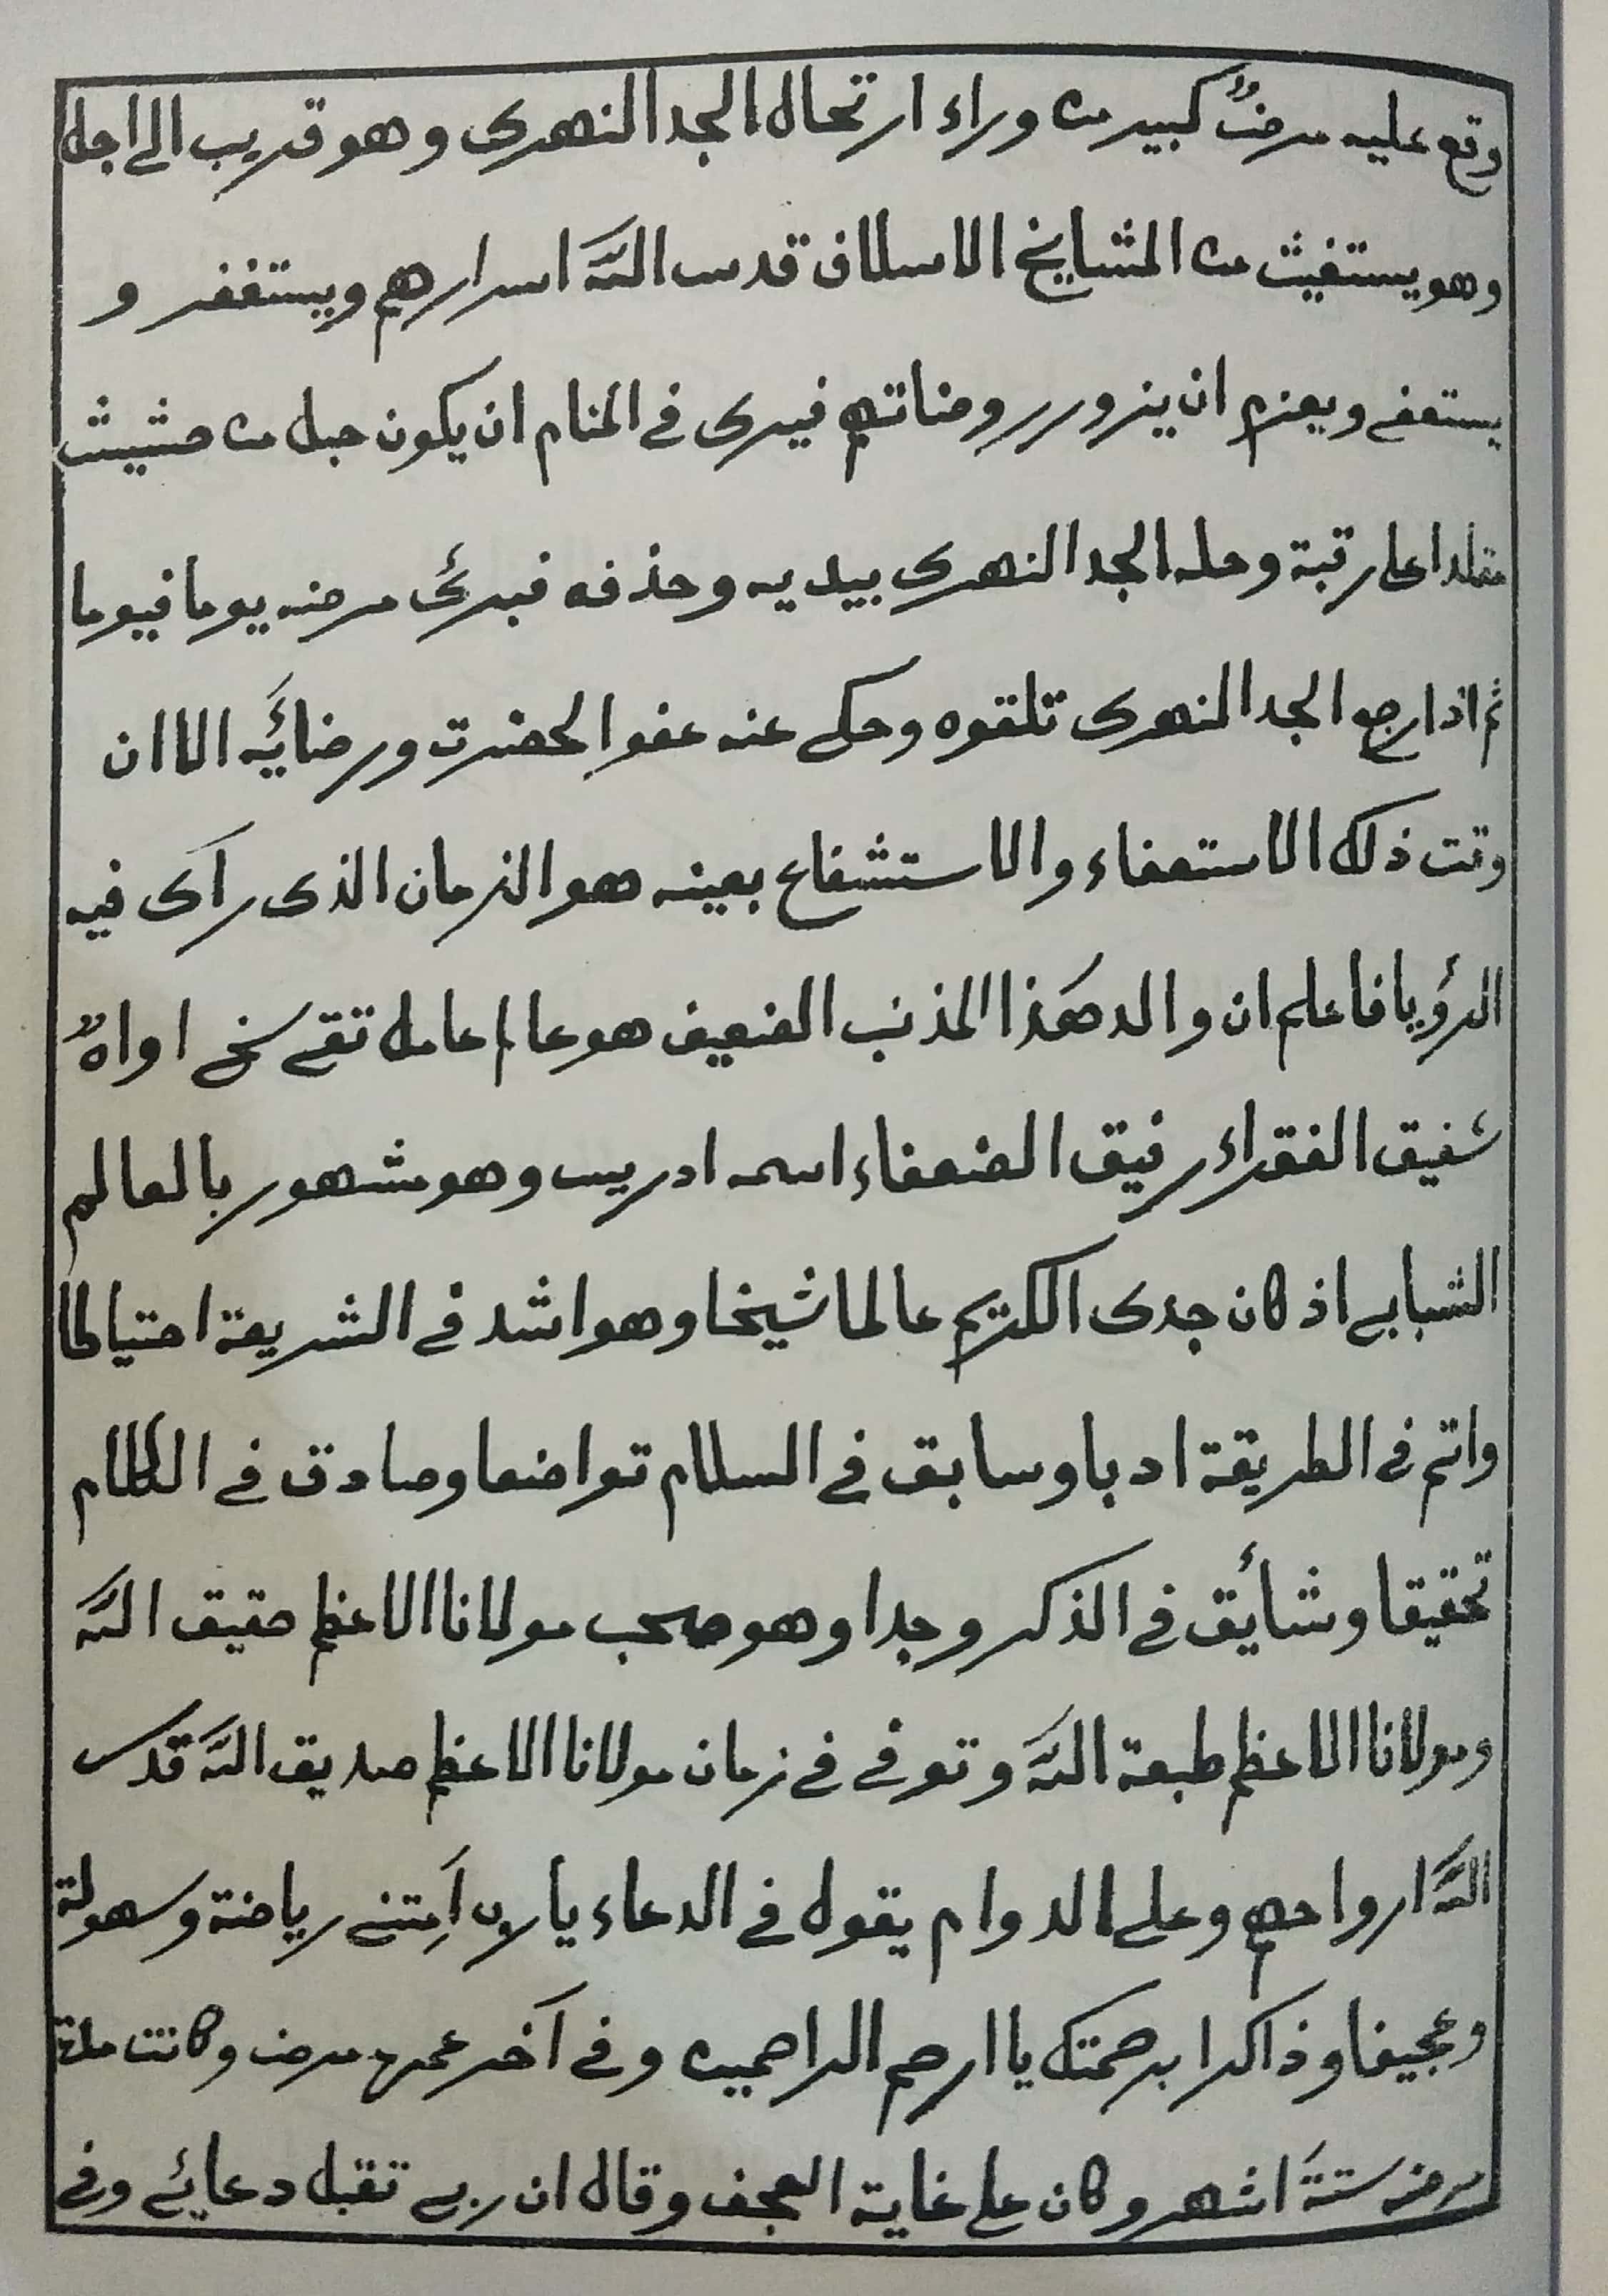 وقع عليه مرضٌ كبير من وراء ارتحال الجد النهرى وهو قريب الى اجل
وهو يستغيث من المشايخ الاسلاف قدس اللّٰه اسرارهم ويستغفر و
يستعفى ويعزم ان يزور روضاتهم فيرى فى المنام ان يكون حبل من حشيش
مقلدا على رقبة وحله الجد النهرى بيديه وحذفه فبرئ مرضه يوما فيوما
ثم اذا رجع الجد النهرى تلقوه وحكى عنه عفو الحضرت ورضائه الا ان
وقت ذلك الاستعفاء والاستشفاع بعينه هو الزمان الذى رآى فيه
الرؤيا فاعلم ان والد هٰذا المذنب الضعيف هو عالم عامل تقى سخى اواهٌ
شفيق الفقراء رفيق الضعفاء اسمه ادريس وهو مشهور بالعالم
الشبابى اذ كان جدى الكريم عالما شيخا وهو اشد فى الشريعة احتياطا
واتم فى الطريقة ادبا وسابق فى السلام تواضعا وصادق فى الكلام
تحقيقا وشائق فى الذكر وجدا وهو صحب مولانا الاعظم حقيق اللّٰه
ومولانا الاعظم طبعة اللّٰه وتوفى فى زمان مولانا الاعظم صديق اللّٰه قدس
اللّٰه ارواحهم وعلى الدوام يقول فى الدعاء يا رب اَمِتنى رياضة وسهولة
وعجيفا وذاكرا برحمتك يا ارحم الراحمين وفى آخر عمره مرض وكانت مدة
مرضه ستةَ اشهر وكان على غاية العجف وقال ان ربى تقبل دعائى وفى